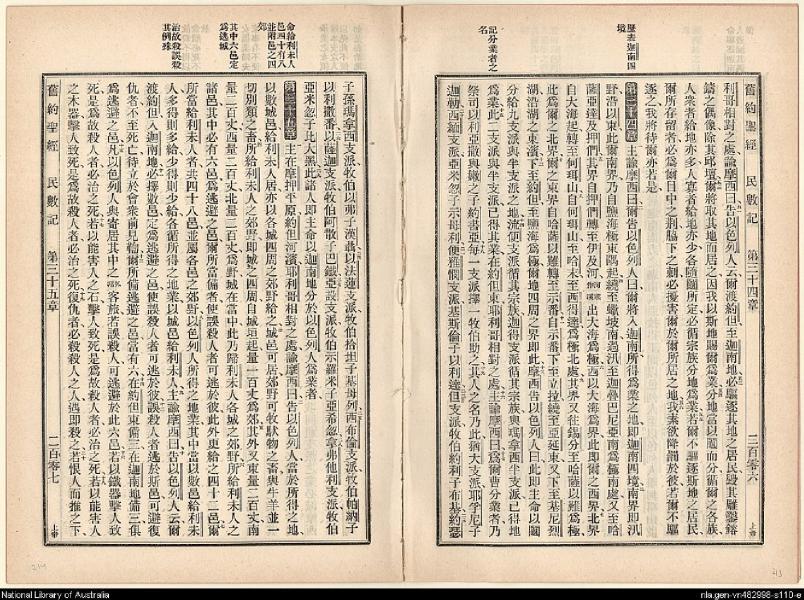 舊約聖經 民數記 第三十四章 二百零六 上帝
歷表迦南四境
記分業者之名
利哥相對之處諭摩西曰告以色列人云爾渡約但至迦南地必驅逐其地之居民毀其雕鏤鎔
鑄之偶像除其邱壇爾將取其地而居之因我以斯地賜爾爲業分地當以鬮而分循爾之各族
人衆者給地亦多人寡者給地亦少各隨鬮所定必循宗族分地爲業若爾不驅逐斯地之居民
爾所存留者必爲爾目中之荆脇下之刺必擾害爾於爾所居之地我素欲降罰於彼若爾不驅
逐之我將待爾亦若是
第三十四章 主諭摩西曰爾告以色列人曰爾將入迦南所得爲業之地即迦南四境南界即汛
野沿以東此爾南界乃自鹽海極東隅起繞至蠍坡南過汛至迦叠巴尼亞南爲極南處又至哈
薩亞達及押們其界自押們轉至伊及河出大海爲極西以大海爲界此即爾之西界北界
自大海起轉至何珥山自何珥山至哈末至西得達爲極北處其界又往錫分至哈薩以難爲極
此爲爾之北界爾之東界自哈薩以難轉至示番自示番下至立拉繞至亞延東又下至基尼烈
湖沿湖之東濱下至約但至鹽海爲極爾地四周之界即此摩西告以色列人曰此即主命以鬮
分給九支派與半支派之地流便支派循其宗族迦得支派循其宗族與瑪拿西半支派已得地
爲業此二支派與半支派已得其業在約但東耶利哥相對之處主諭摩西曰爲爾曹分業者乃
祭司以利亞撒與嫩之子約書亞每一支派擇一牧伯助之其人之名乃此猶大支派耶孚尼子
迦勒西緬支派亞米忽子示母利便雅憫支派基斯倫子以利達但支派牧伯約利子布基約瑟
命給利未人邑四十有八並附邑之四郊
其中六邑定爲逃城
治故殺誤殺其例殊
子孫瑪拿西支派牧伯以弗子漢聶以法蓮支派牧伯拾坦子基母列西布倫支派牧伯帕納子
以利撒番以薩迦支派牧伯阿散子巴鐵亞設支派牧伯示羅米子亞希忽拿弗他利支派牧伯
亞米忽子比大黑此諸人即主命以迦南地分於以色列人爲業者
第三十五章 主在摩押平原約但河濱耶利哥相對之處諭摩西曰告以色列人當於所得之地
以數城邑給利未人居亦以各城四周之郊野給之城邑可居郊野可牧獸物之畜與牛羊並一
切別類之畜所給利未人之郊野即城之四周自城垣起量一百丈爲郊其外又東量二百丈南
量二百丈西量二百丈北量二百丈爲野城在當中此乃歸利未人各城之郊野所給利未人之
諸邑其中亦有六邑爲逃避之邑爾所當備者使誤殺人者可逃於彼此外更給之四十二邑爾
所當給利未人者共四十八邑並屬各邑之郊野以色列人所得之地業其中當以數邑給利未
人多得則多給少得則少給各循所得之地業以城邑給利未人主諭摩西曰告以色列人云爾
渡約但入迦南地必擇數邑定爲逃避之邑使誤殺人者可逃於彼誤殺人者逃於斯邑可避復
仇者不至死亡待立於會衆前見鞫爾所備逃避之邑當有六在約但東備三在迦南地備三俱
爲逃避之邑凡以色列人與寄居其中之客旅若誤殺人可逃避於此六邑若以鐵器擊人致
死是爲故殺人者必治之死若以能害人之石擊人致死是爲故殺人者必治之死若以能害人
之木器擊人致死是爲故殺人者必治之死復仇者必殺殺人之人遇即殺之若恨人而推之下
舊約聖經 民數記 第三十五章 二百零七 上帝
National Library of Australia
nla.gen-vn482998-s110-e